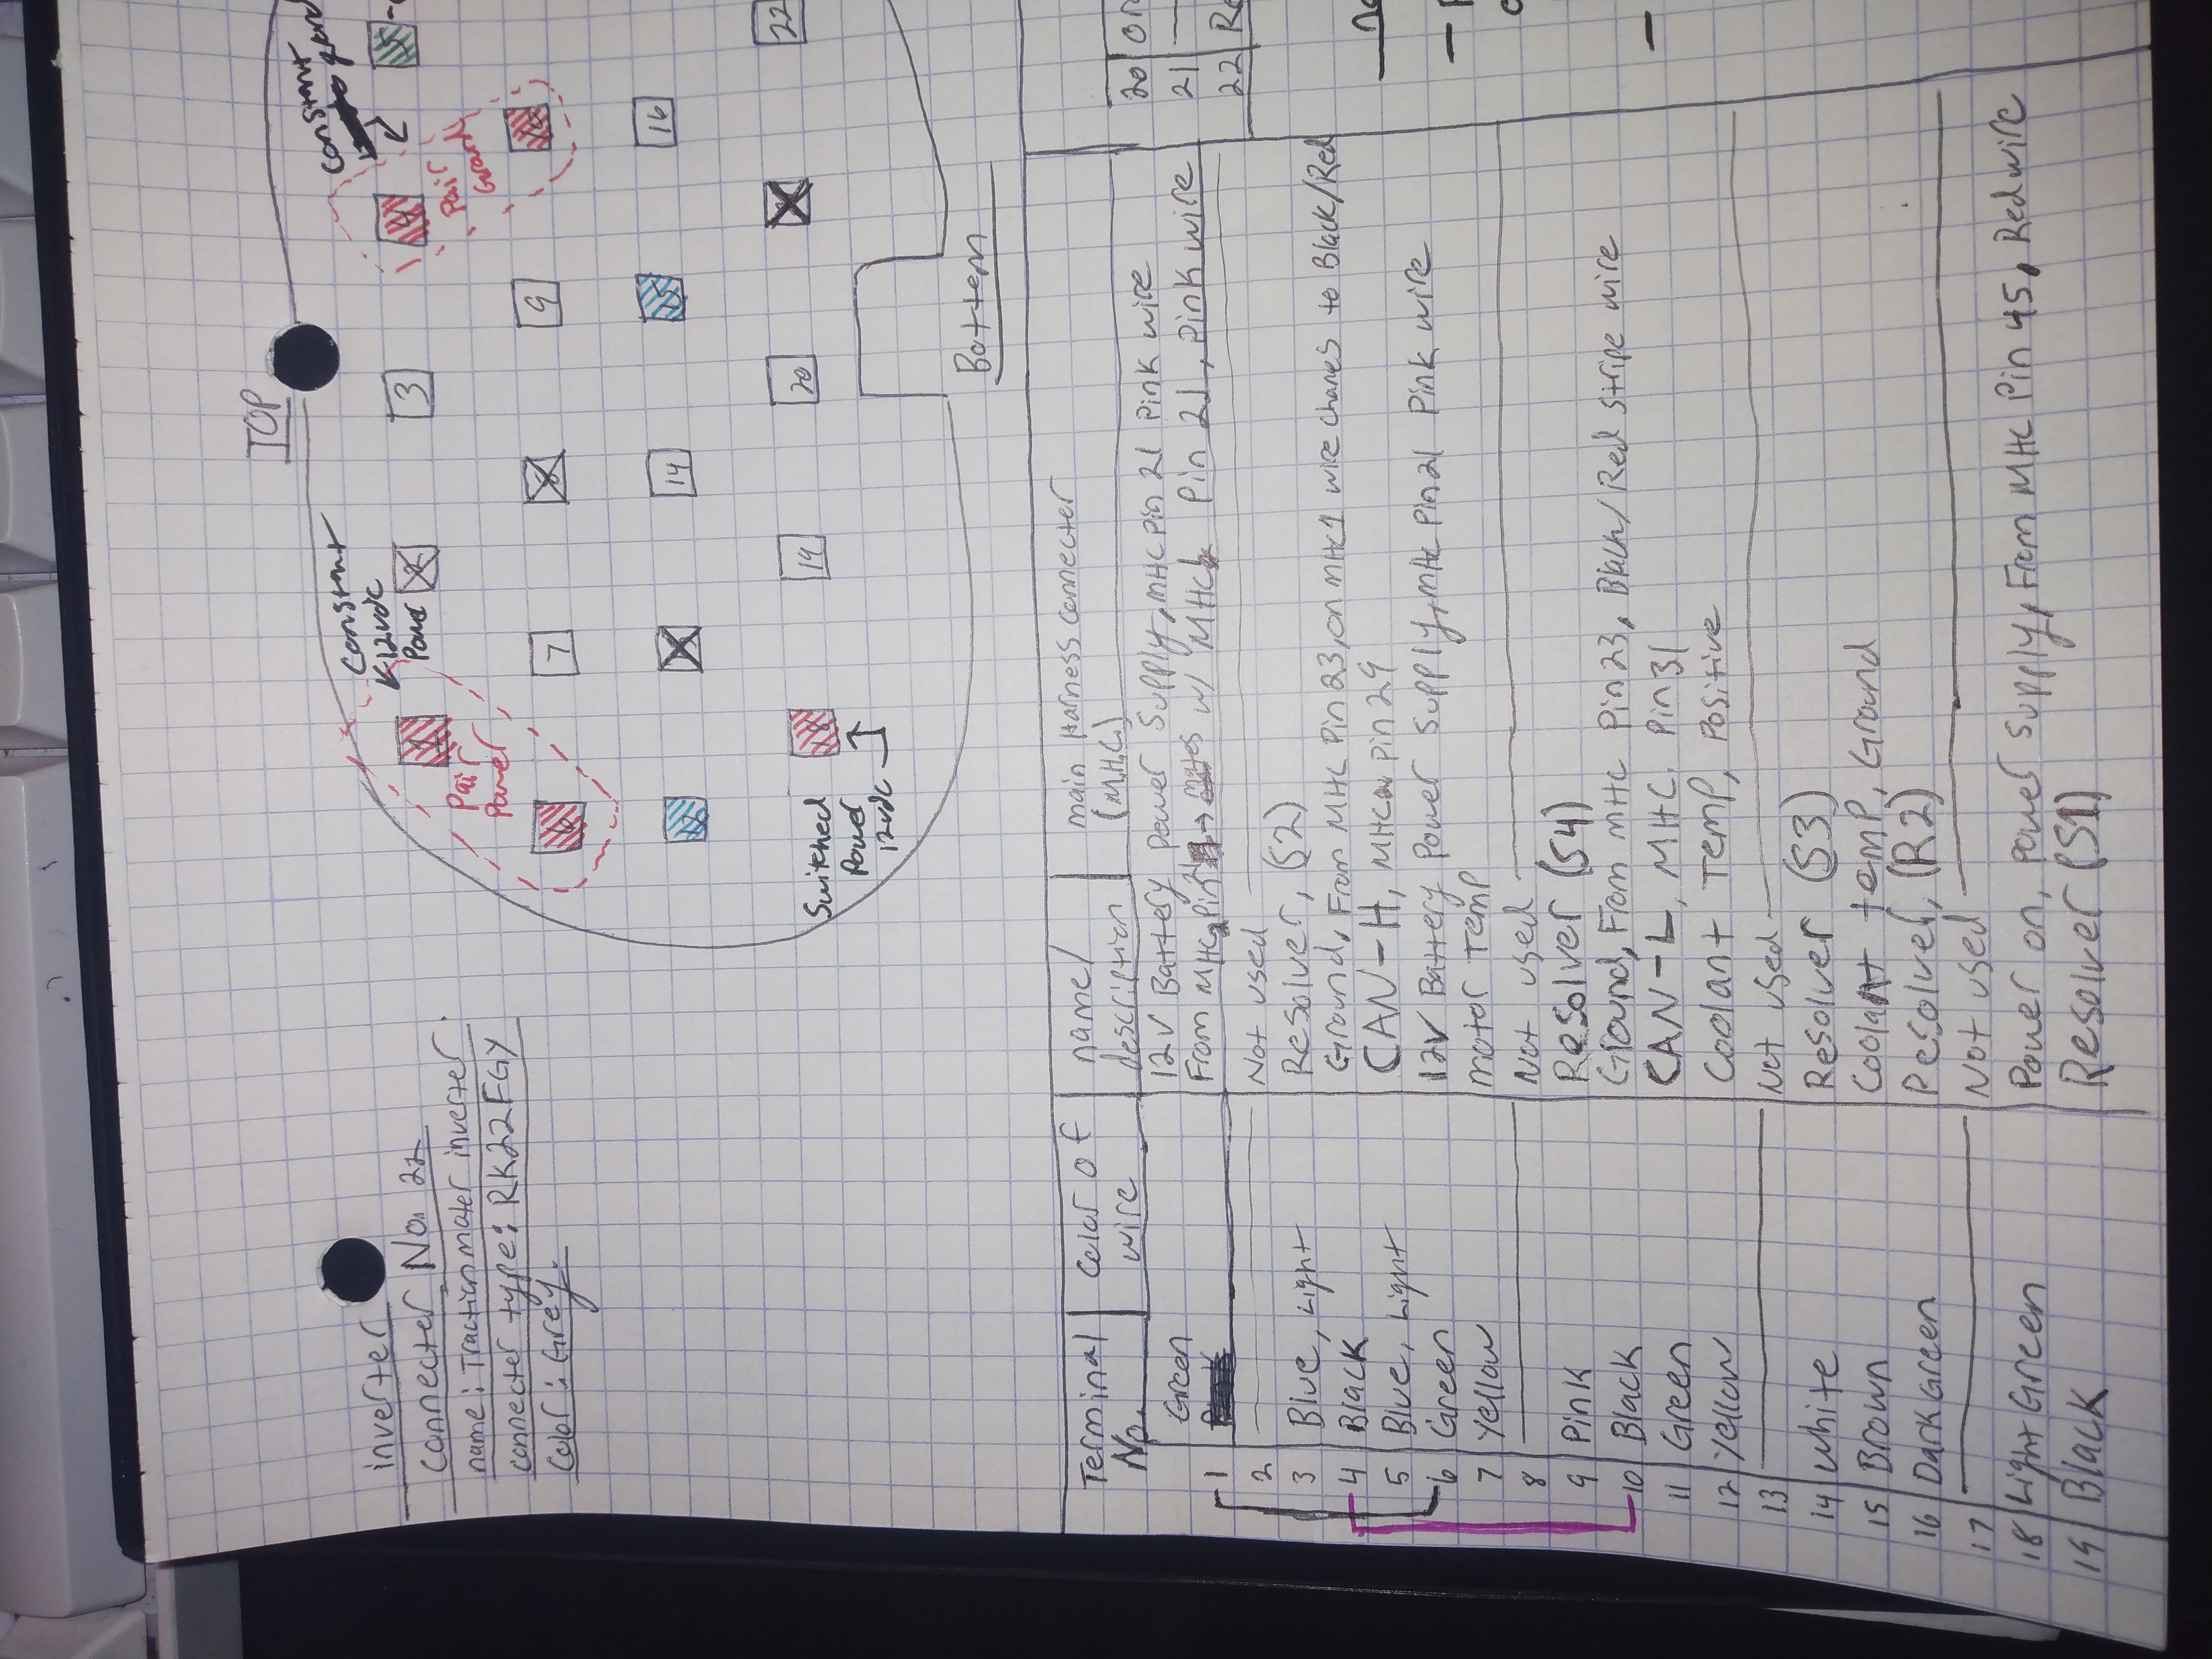 TOP
inverter
connecter No. 22
name: Traction motor inverter.
connecter type: RK22FGY
Color: Grey.
Constant
12vdc
Power
constant
Pair
Power
Pair
Ground
3
7
9
14
15
16
19
20
22
Switched
Power
12vdc
Bottem
Terminal No. | Color of wire | name/description | main Harness connecter (M.H.C.)
1 Green 12V Battery Power Supply, MHC pin 21 Pink wire
From MHC w/ MHC Pin 21, Pink wire
2 Not used
3 Blue, Light Resolver, (S2)
4 Black Ground, From MHC Pin 23, on MHC1 wire chanes to Black/Red
5 Blue, Light CAN-H, MHC Pin 29
6 Green 12V Battery Power Supply, MHC Pin 21 Pink wire
7 Yellow motor Temp
8 Not used
9 Pink Resolver (S4)
10 Black Ground, From MHC Pin 23, Black/Red stripe wire
11 Green CAN-L, MHC. Pin 31
12 Yellow Coolant Temp, Positive
13 Not used
14 White Resolver (S3)
15 Brown Coolant temp, Ground
16 Dark Green Resolver, (R2)
17 Not used
18 Light Green Power on, Power supply, From MHC Pin 45, Red wire
19 Black Resolver (S1)
20
21
22